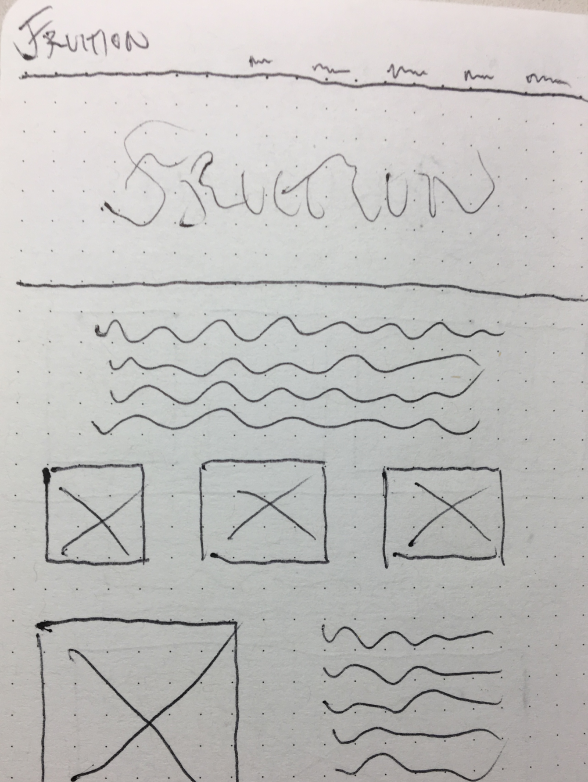 FRUITION
FRUITION